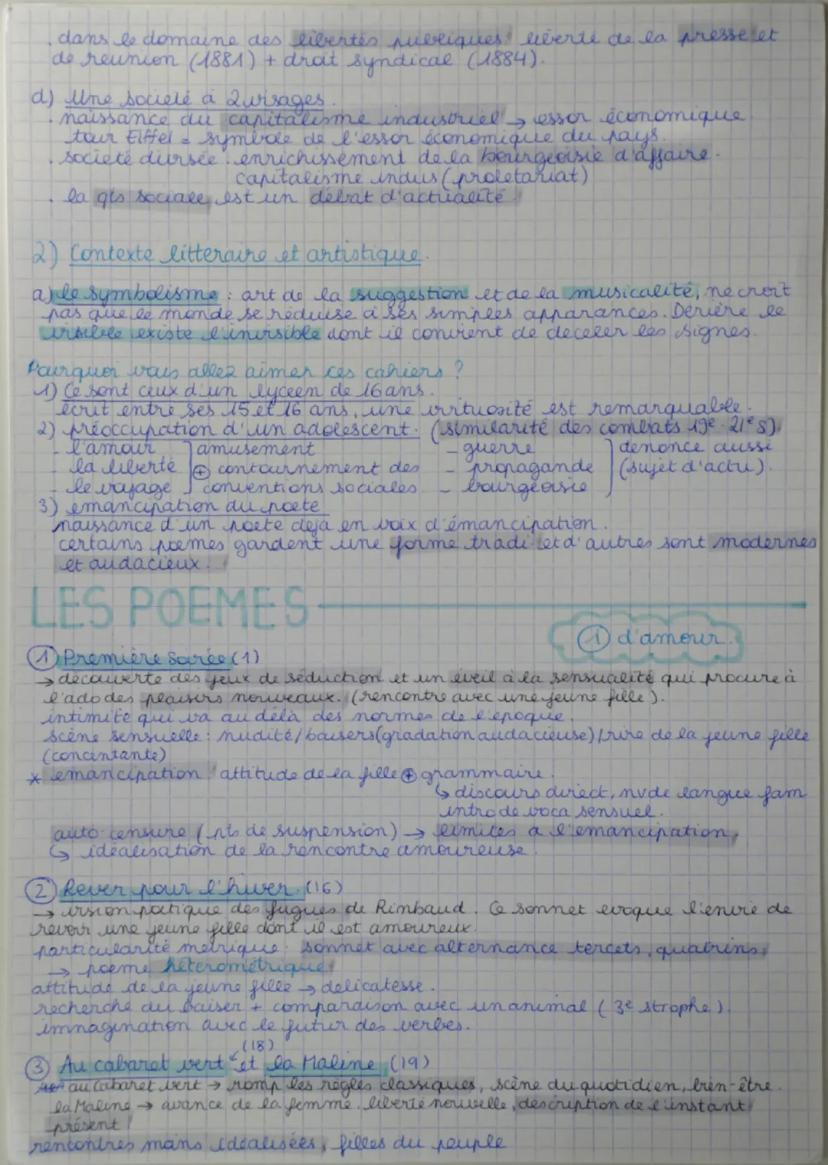 . dans le domaine des libertés publiques : liberté de la presse et
de réunion (1881) + droit syndical (1884).
d) Une société à 2 visages.
. naissance du capitalisme industriel → essor économique
tour Eiffel = symbole de l'essor économique du pays.
. société divisée : enrichissement de la bourgeoisie d'affaire.
capitalisme indus (prolétariat)
. la qts sociale est un débat d'actualité.
2) Contexte littéraire et artistique.
a) le symbolisme : art de la suggestion et de la musicalité, ne croit
pas que le monde se réduise à ses simples apparances. Derière le
visible existe l'invisible dont il convient de déceler les signes.
Pourquoi vous allez aimer ces cahiers ?
1) Ce sont ceux d'un lycéen de 16 ans.
écrit entre ses 15 et 16 ans, une virtuosité est remarquable.
2) préoccupation d'un adolescent. (similarité des combats 19e - 21e s)
- l'amour ] amusement - guerre ] dénonce aussi
- la liberté ⊕ contournement des - propagande (sujet d'actu).
- le voyage ] conventions sociales - bourgeoisie
3) émancipation du poète
naissance d'un poète déjà en voix d'émancipation.
certains poèmes gardent une forme tradi et d'autres sont modernes
et audacieux.
LES POEMES
① d'amour.
① Première soirée (1)
→ découverte des jeux de séduction et un éveil à la sensualité qui procure à
l'ado des plaisirs nouveaux. (rencontre avec une jeune fille).
intimité qui va au delà des normes de l'époque.
scène sensuelle : nudité / baisers (gradation audacieuse) / rire de la jeune fille
(concentante)
* émancipation : attitude de la fille ⊕ grammaire.
↳ discours direct, nv de langue fam
intro de voca sensuel.
auto censure (pts de suspension) → limites à l'émancipation,
↳ idéalisation de la rencontre amoureuse.
② Rever pour l'hiver. (16)
→ vision poétique des fugues de Rimbaud. Ce sonnet evoque l'envie de
revoir une jeune fille dont il est amoureux.
particularité métrique : sonnet avec alternance tercets, quatrins,
→ poème hétérométrique
attitude de la jeune fille → délicatesse.
recherche du baiser + comparaison avec un animal (3e strophe).
immagination avec le futur des verbes.
③ Au cabaret vert (18) et la Maline (19)
au Cabaret vert → romp les règles classiques, scène du quotidien, bien-être.
la Maline → avance de la femme, liberté nouvelle, description de l'instant
présent
rencontres moins idéalisées, filles du peuple